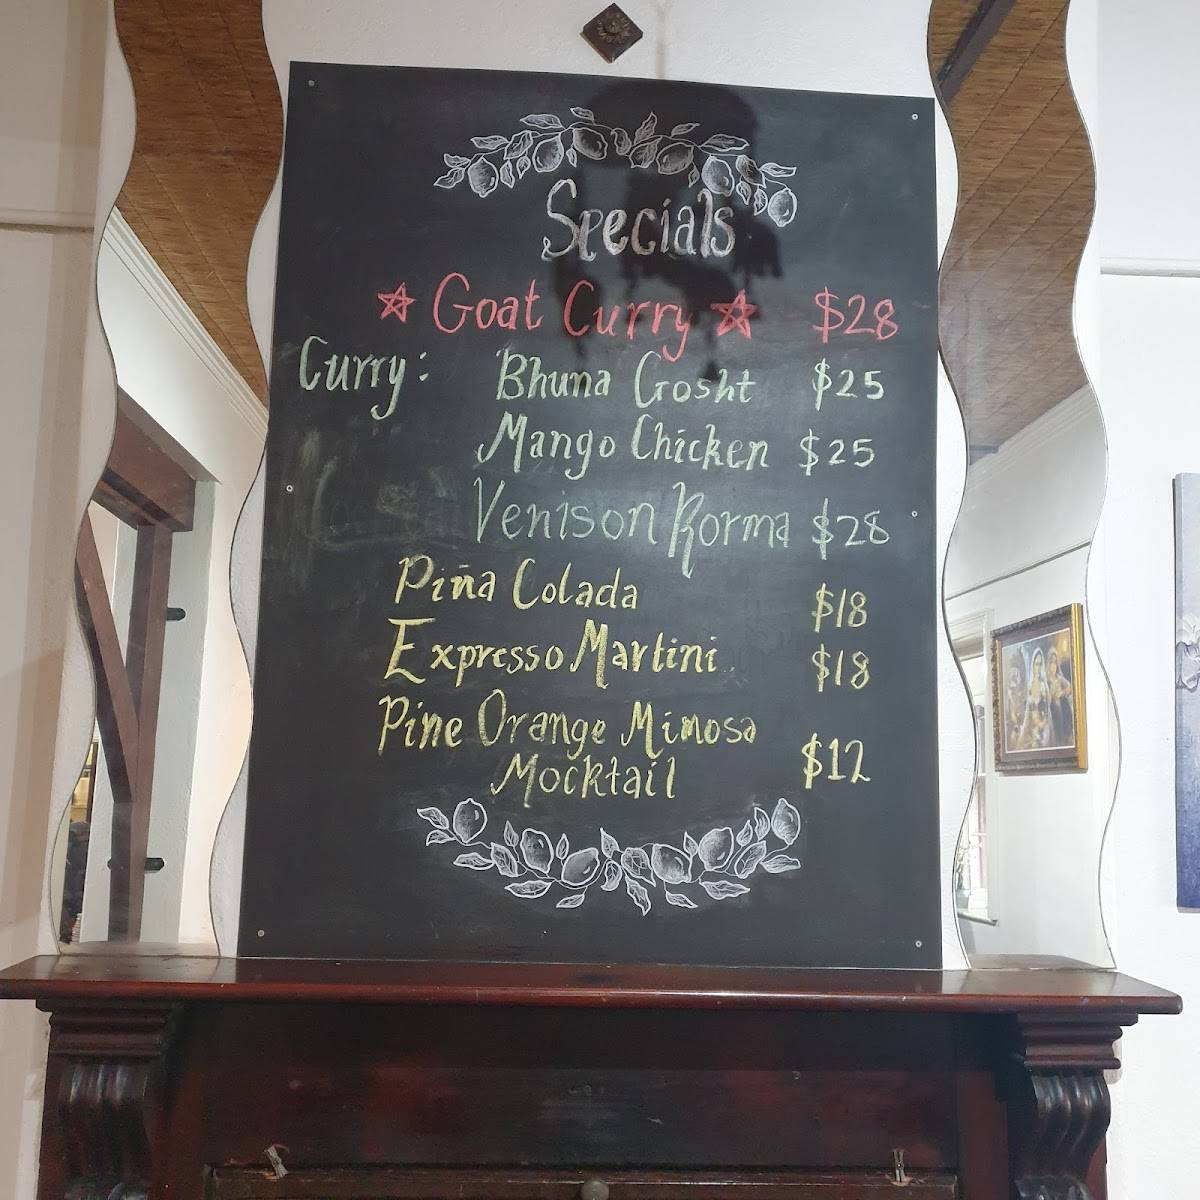 Specials
☆ Goat Curry ☆ $28
Curry: Bhuna Gosht $25
Mango Chicken $25
Venison Korma $28
Piña Colada $18
Expresso Martini $18
Pine Orange Mimosa
Mocktail $12